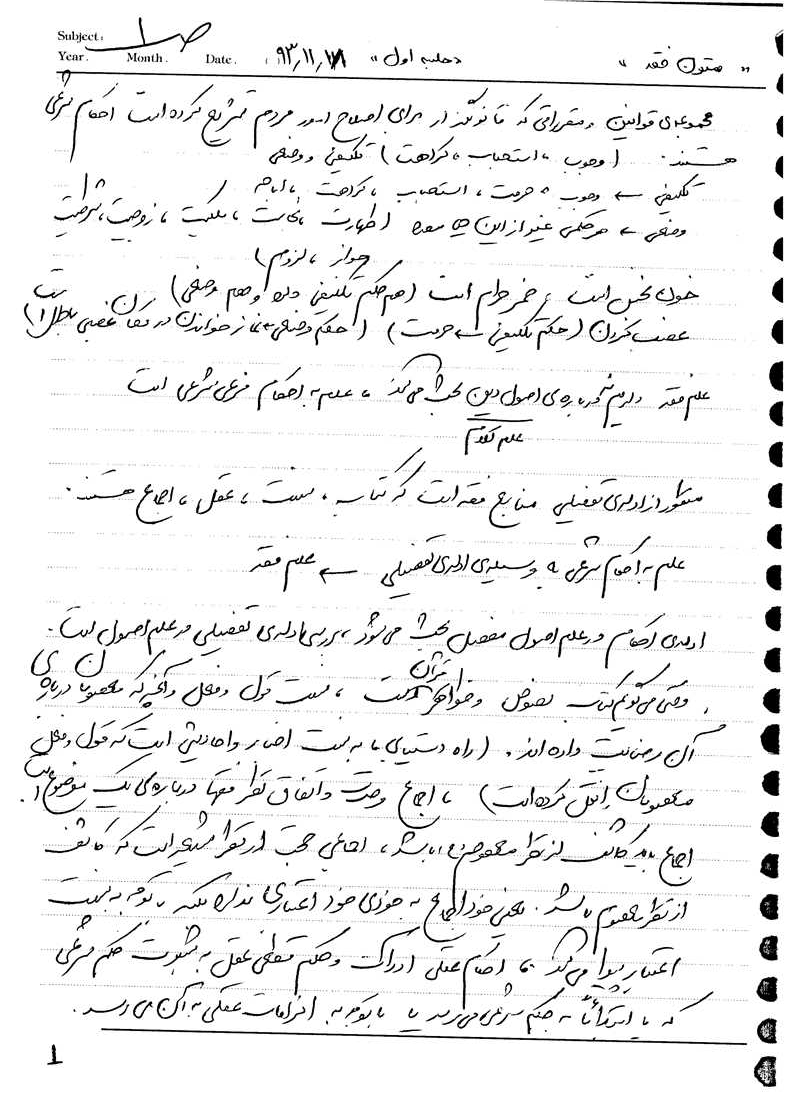 Subject: ص ۱
Year. Month. Date. ۹۳٫۱۱٫۱۸ «جلسه اول» «متون فقه»
مجموعه‌ی قوانین و مقرراتی که قانونگذار برای اصلاح امور مردم تشریح کرده است احکام شرعی
هستند. (وجوب، استحباب، کراهت) تکلیفی و وضعی
تکلیفی ← وجوب، حرمت، استحباب، کراهت، اباحه
وضعی ← هر حکمی غیر از این ۵ مورد (طهارت، نجاست، ملکیت، زوجیت، شرطیت
جواز، لزوم)
خون نجس است، خمر حرام است (هم حکم تکلیفی دارد و هم وضعی)
غصب کردن (حکم تکلیفی ← حرمت) (حکم وضعی ← نماز خواندن در مکان غصبی باطل است)
علم فقه درباره‌ی اصول دین بحث می‌کند، علم به احکام فرعی شرعی است
علم کلام
منظور از ادله‌ی تفصیلی منابع فقه است که کتاب، سنت، عقل، اجماع هستند.
علم به احکام شرعی به وسیله‌ی ادله‌ی تفصیلی ← علم فقه
ادله‌ی احکام در علم اصول مفصل بحث می‌شود، بررسی ادله‌ی تفصیلی در علم اصول است.
وقتی می‌گوییم کتاب نصوص و ظواهر قرآن است، سنت قول و فعل و آنچه که معصومان درباره‌ی
آن رضایت داده‌اند. (راه دستیابی ما به سنت اخبار و احادیثی است که قول و فعل
معصومان را نقل کرده است)، اجماع وحدت و اتفاق نظر فقها درباره‌ی یک موضوع است.
اجماع باید کاشف از نظر معصوم باشد، اجماعی حجت از نظر شیعه است که کاشف
از نظر معصوم باشد. یعنی خود اجماع به خودی خود اعتباری ندارد بلکه با توجه به سنت
اعتبار پیدا می‌کند، احکام عقلی ادراک و حکم قطعی عقل به ثبوت حکم شرعی
که یا ابتدائاً به حکم شرعی می‌رسد یا با توجه به الزامات عقلی به آن می‌رسد.
1